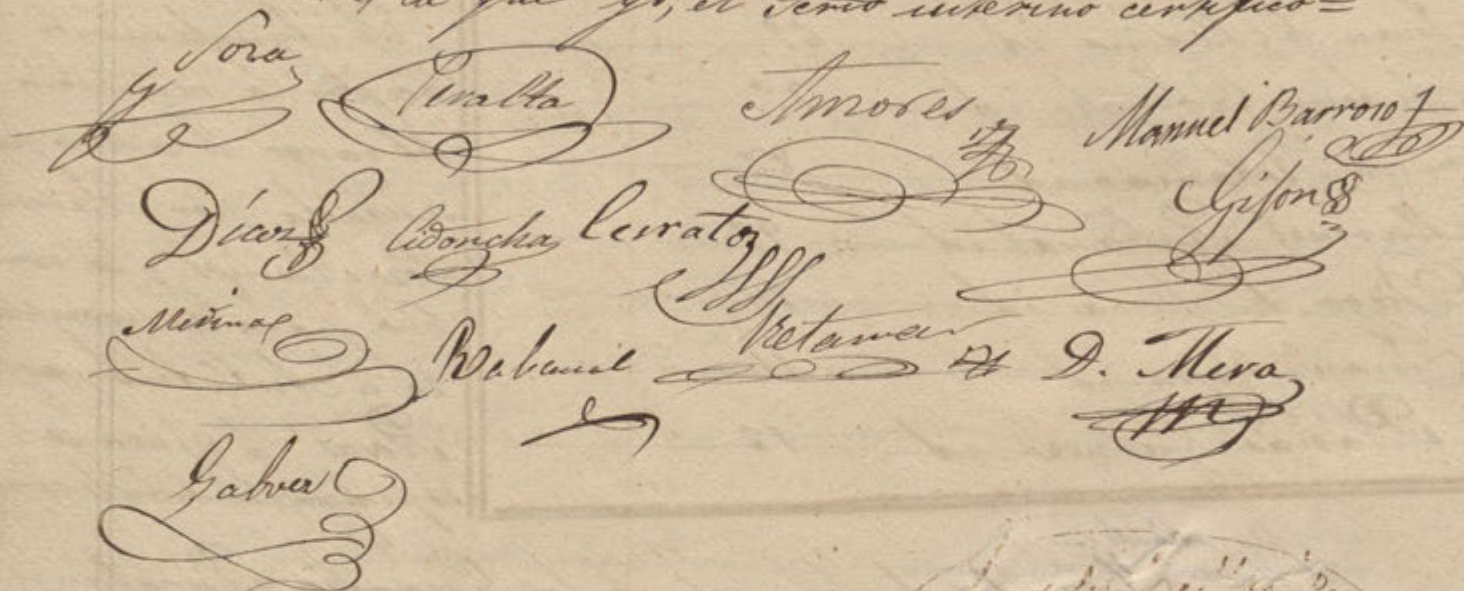 de que yo, el Scrio interino certifico=
Sora Peralta Amores Manuel Barroso
Díaz Cidoncha Cerrato Gijon
Medina Rabanal Retamar D. Mera
Galvez